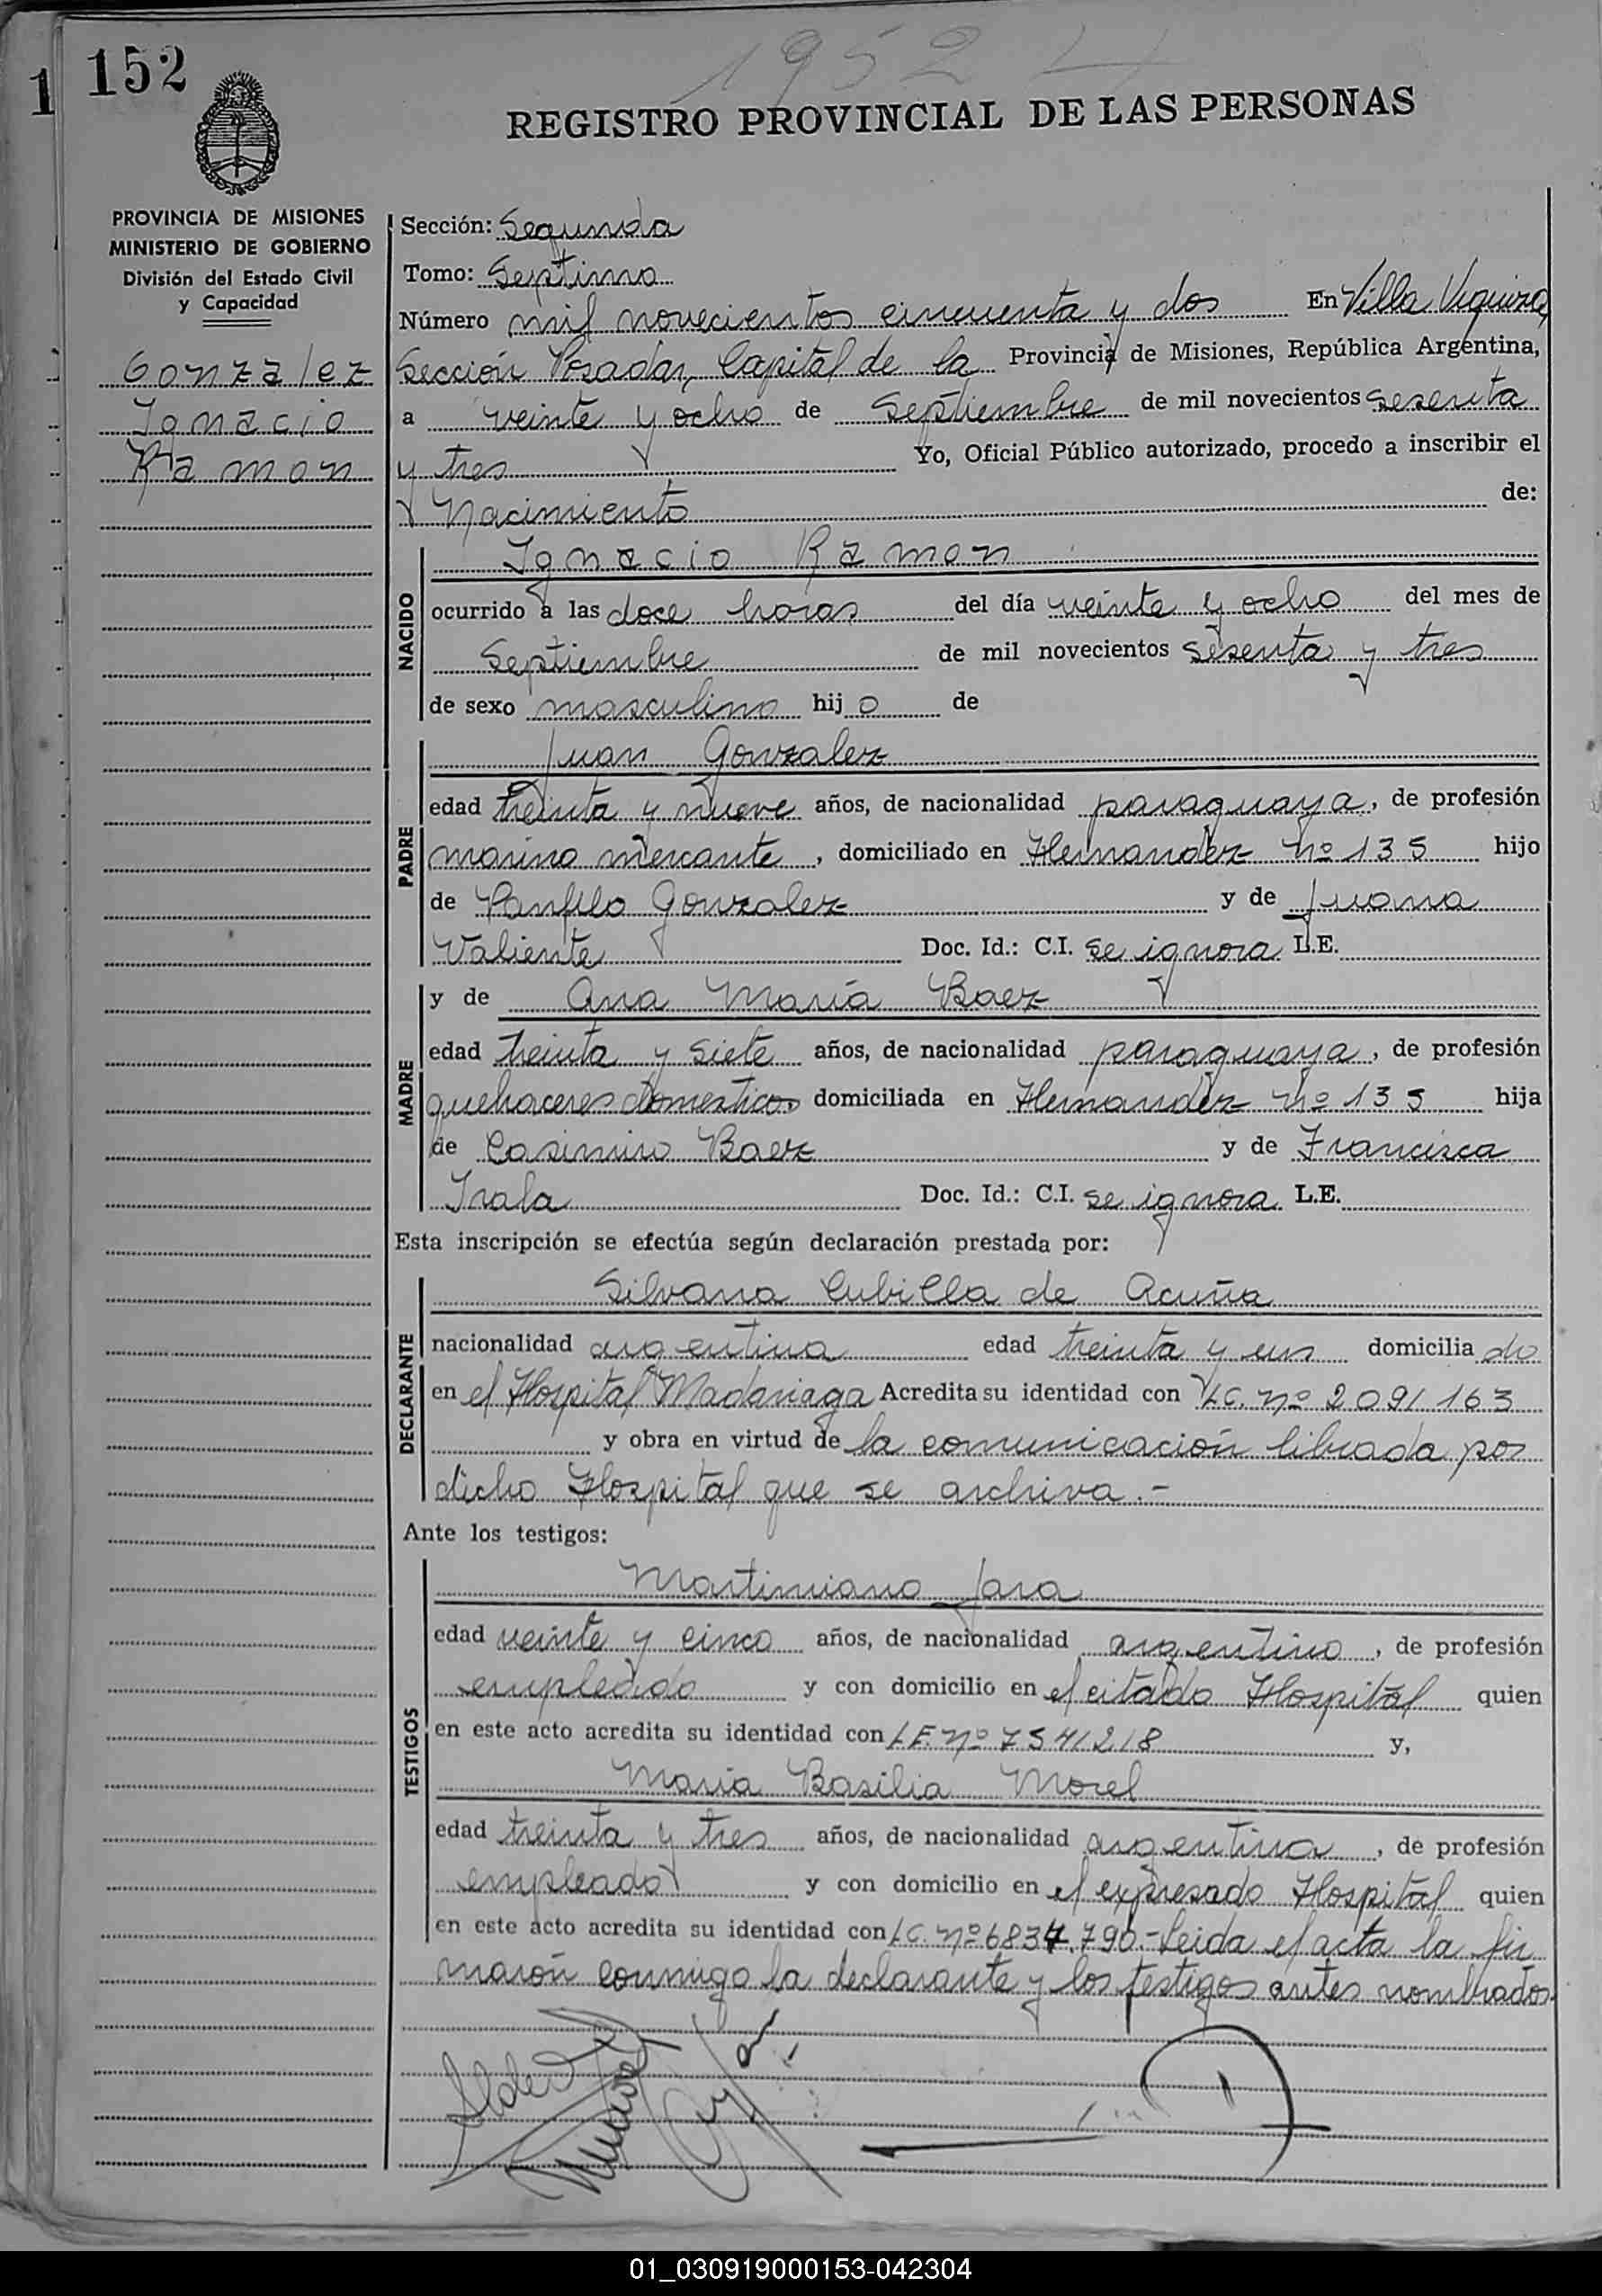 1952
1
152
REGISTRO PROVINCIAL DE LAS PERSONAS
PROVINCIA DE MISIONES
MINISTERIO DE GOBIERNO
División del Estado Civil
y Capacidad
Gonzalez
Ignacio
Ramon
Sección: Segunda
Tomo: Septimo
Número mil novecientos cincuenta y dos En Villa
Sección Posadas, Capital de la Provincia de Misiones, República Argentina,
a veinte y ocho de Septiembre de mil novecientos sesenta
y tres Yo, Oficial Público autorizado, procedo a inscribir el
Nacimiento de:
NACIDO
Ignacio Ramon
ocurrido a las doce horas del día veinte y ocho del mes de
Septiembre de mil novecientos sesenta y tres
de sexo masculino hijo de
PADRE
Juan Gonzalez
edad treinta y nueve años, de nacionalidad paraguaya, de profesión
marino mercante, domiciliado en Hernandez Nº 135 hijo
de Panfilo Gonzalez y de Juana
Valiente Doc. Id.: C.I. se ignora L.E.
MADRE
y de Ana María Baez
edad treinta y siete años, de nacionalidad paraguaya, de profesión
quehaceres domesticos domiciliada en Hernandez Nº 135 hija
de Casimiro Baez y de Francisca
Irala Doc. Id.: C.I. se ignora L.E.
Esta inscripción se efectúa según declaración prestada por:
DECLARANTE
Silvana Cubilla de Acuña
nacionalidad argentina edad treinta y un domiciliado
en el Hospital Madariaga Acredita su identidad con L.C. nº 2091163
y obra en virtud de la comunicación librada por
dicho Hospital que se archiva.-
Ante los testigos:
TESTIGOS
Martimiano Jara
edad veinte y cinco años, de nacionalidad argentino, de profesión
empleado y con domicilio en el citado Hospital quien
en este acto acredita su identidad con L.E. nº 7541218 y,
María Basilia Morel
edad treinta y tres años, de nacionalidad argentina, de profesión
empleado y con domicilio en el expresado Hospital quien
en este acto acredita su identidad con L.C. nº 6834.790.- Leida el acta la fir
maron conmigo la declarante y los testigos antes nombrados.
01_030919000153-042304